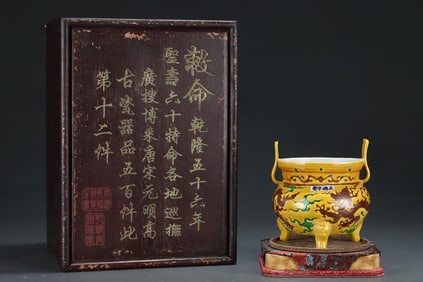 敕命 乾隆五十六年
聖壽六十特命各地巡撫
廣搜博采唐宋元明高
古瓷器品五百件此
第十二件